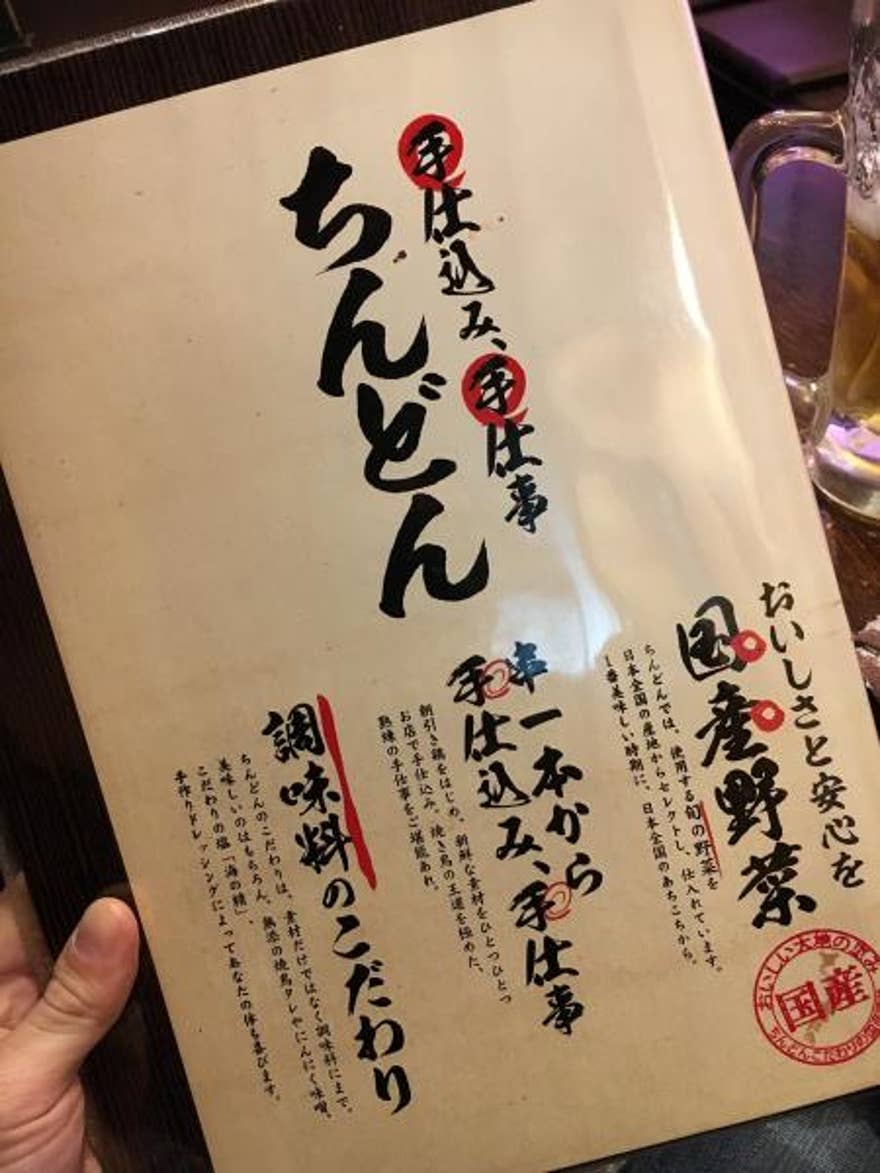 手仕込み、手仕事
ちんどん
おいしさと安心を
国産野菜
ちんどんでは、使用する旬の野菜を
日本全国の産地からセレクトし、仕入れています。
1番美味しい時期に、日本全国のあちこちから。
おいしい大地の恵み
国産
ちんどんこだわりの
串一本から
手仕込み、手仕事
朝引き鶏をはじめ、新鮮な素材をひとつひとつ
お店で手仕込み。焼き鳥の王道を極めた、
熟練の手仕事をご堪能あれ。
調味料のこだわり
ちんどんのこだわりは、素材だけではなく調味料にまで。
美味しいのはもちろん、無添の焼鳥タレやにんにく味噌、
こだわりの塩「海の精」、
手作りドレッシングによってあなたの体も喜びます。